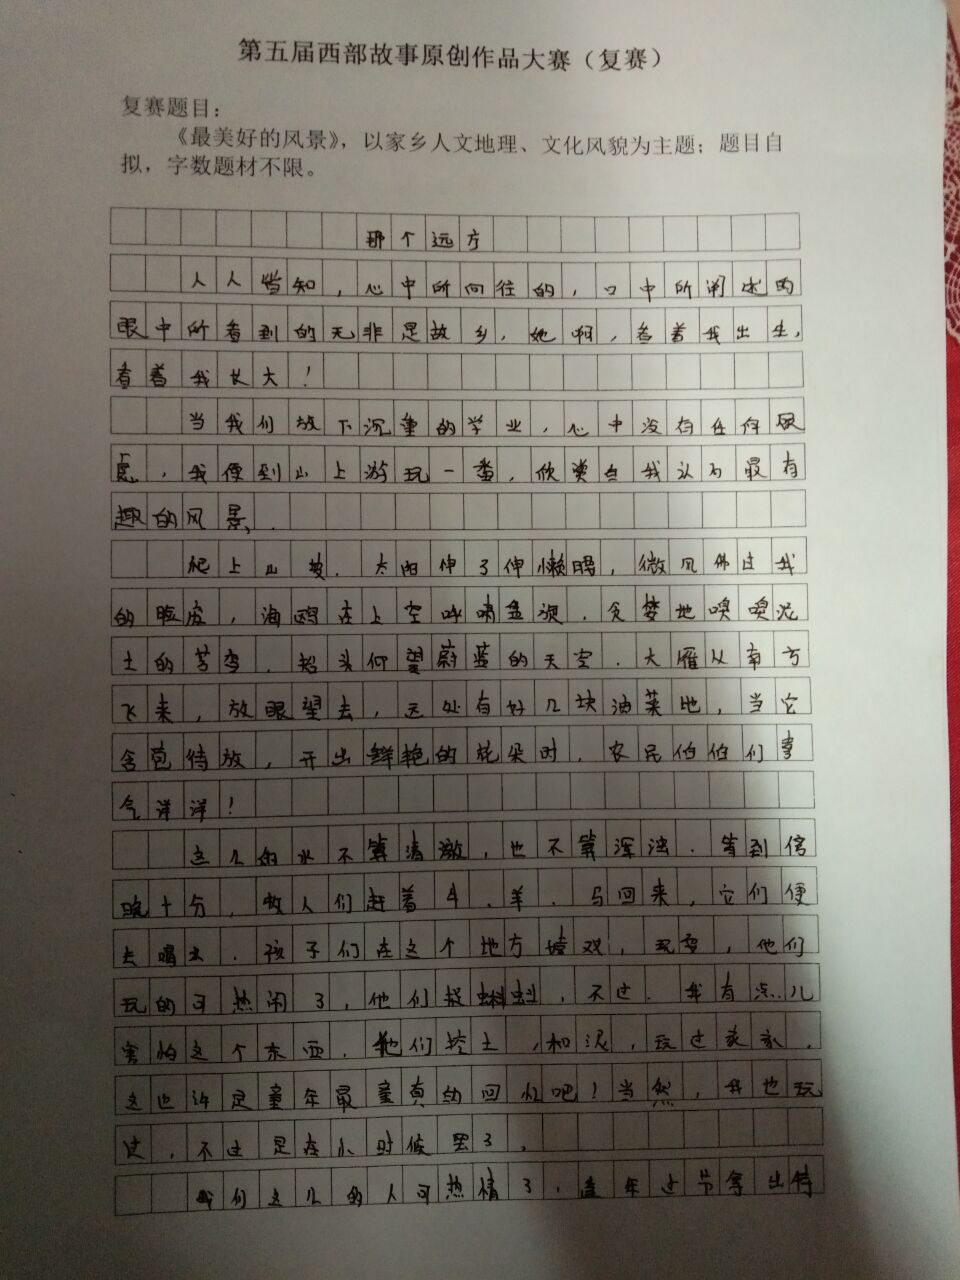 第五届西部故事原创作品大赛（复赛）
复赛题目：
《最美好的风景》，以家乡人文地理、文化风貌为主题；题目自
拟，字数题材不限。
那个远方
人人皆知，心中所向往的，口中所阐述的
眼中所看到的无非是故乡，她啊，看着我出生，
看着我长大！
当我们放下沉重的学业，心中没有任何顾
虑，我便到山上游玩一番，欣赏自我认为最有
趣的风景，
爬上山坡，太阳伸了伸懒腰，微风佛过我
的脸庞，海鸥在上空呼啸盘旋，贪婪地嗅嗅泥
土的芳香，抬头仰望蔚蓝的天空，大雁从南方
飞来，放眼望去，远处有好几块油菜地，当它
含苞待放，开出鲜艳的花朵时，农民伯伯们喜
气洋洋！
这儿的水不算清澈，也不算浑浊，等到傍
晚十分，牧人们赶着牛、羊、马回来，它们便
去喝水，孩子们在这个地方嬉戏，玩耍，他们
玩的可热闹了，他们捉蝌蚪，不过，我有点儿
害怕这个东西，他们挖土，和泥，玩过家家，
这也许是童年最童真的回忆吧！当然，我也玩
过，不过是在小时候罢了。
我们这儿的人可热情了，逢年过节拿出特